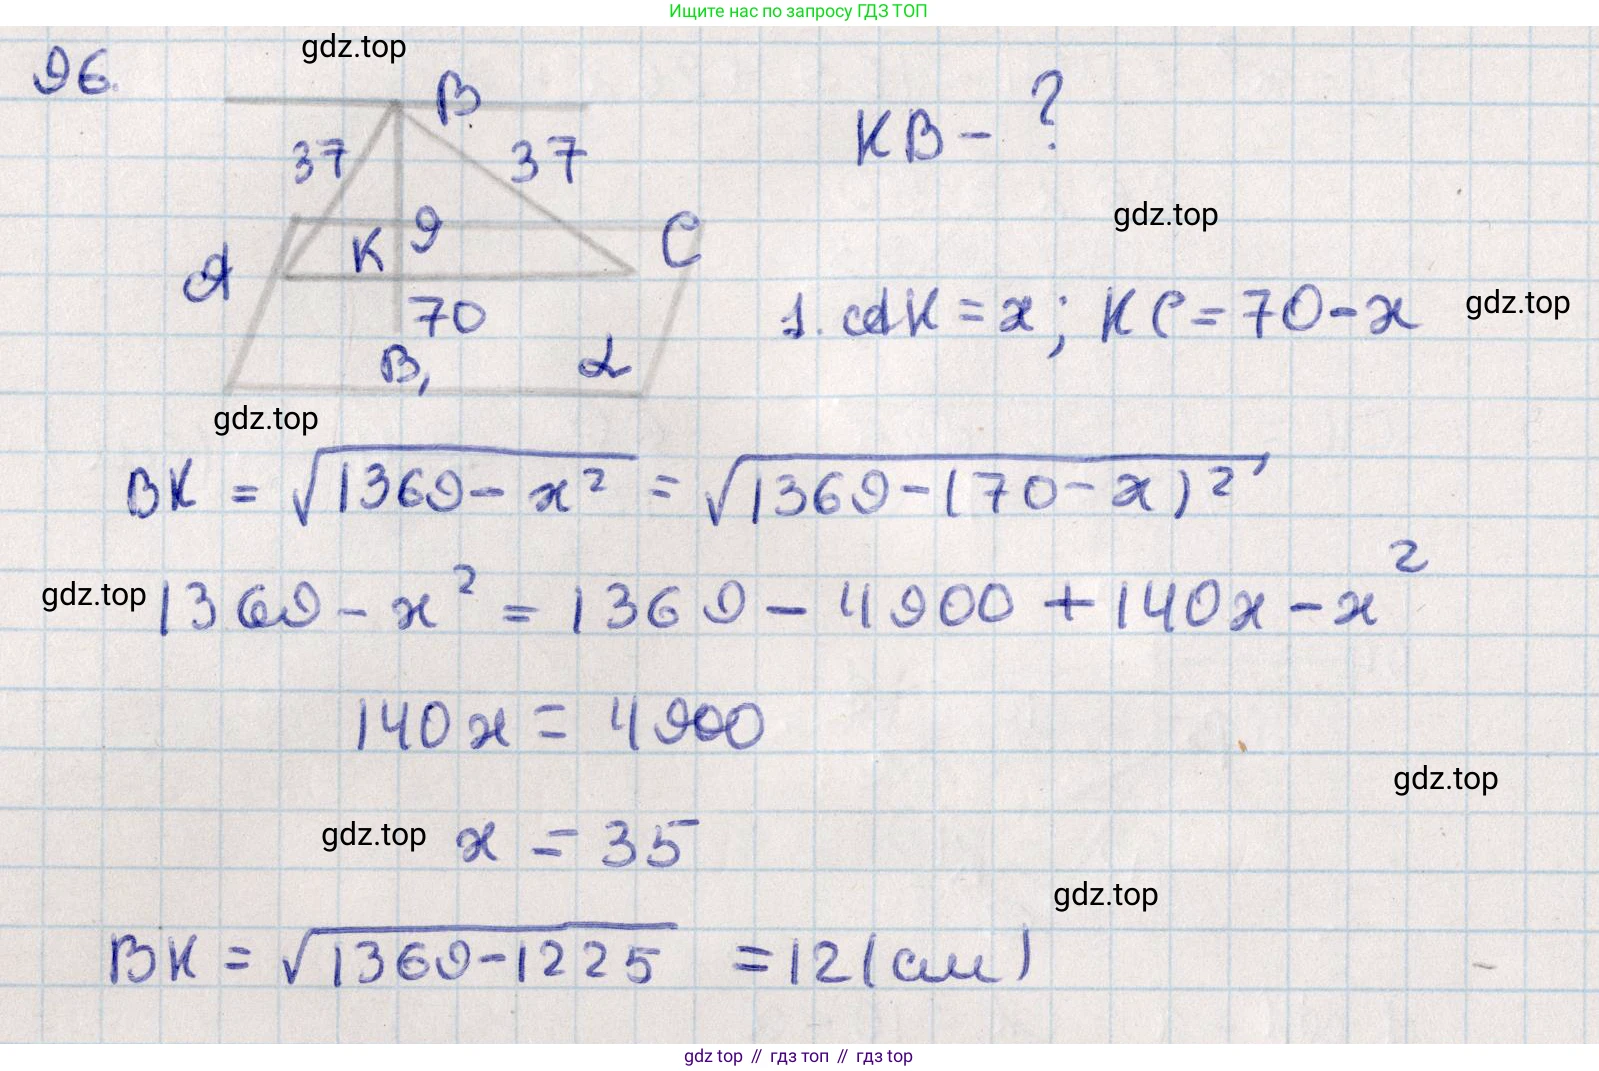 Ищите нас по запросу ГДЗ ТОП
96.
gdz.top
B
37
37
KB - ?
gdz.top
A
K
9
C
70
B₁
α
1. AK = x; KC = 70 - x
gdz.top
gdz.top
BK = √(1369 - x²) = √(1369 - (70 - x)²)
gdz.top
1369 - x² = 1369 - 4900 + 140x - x²
140x = 4900
gdz.top
gdz.top
x = 35
gdz.top
BK = √(1369 - 1225) = 12 (см)
gdz top // гдз топ // гдз top